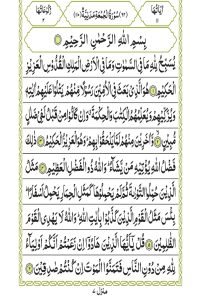 اٰیَاتُهَا ١١ (٦٢) سُوْرَةُ الْجُمُعَةِ مَدَنِيَّةٌ (١١٠) رُكُوْعَاتُهَا ٢
بِسْمِ اللّٰهِ الرَّحْمٰنِ الرَّحِيْمِ
يُسَبِّحُ لِلّٰهِ مَا فِي السَّمٰوٰتِ وَمَا فِي الْاَرْضِ الْمَلِكِ الْقُدُّوْسِ الْعَزِيْزِ
الْحَكِيْمِ ۝١ هُوَ الَّذِيْ بَعَثَ فِي الْاُمِّيّٖنَ رَسُوْلًا مِّنْهُمْ يَتْلُوْا عَلَيْهِمْ اٰيٰتِهٖ
وَيُزَكِّيْهِمْ وَيُعَلِّمُهُمُ الْكِتٰبَ وَالْحِكْمَةَ وَاِنْ كَانُوْا مِنْ قَبْلُ لَفِيْ ضَلٰلٍ
مُّبِيْنٍ ۝٢ وَّاٰخَرِيْنَ مِنْهُمْ لَمَّا يَلْحَقُوْا بِهِمْ وَهُوَ الْعَزِيْزُ الْحَكِيْمُ ۝٣ ذٰلِكَ
فَضْلُ اللّٰهِ يُؤْتِيْهِ مَنْ يَّشَآءُ وَاللّٰهُ ذُو الْفَضْلِ الْعَظِيْمِ ۝٤ مَثَلُ
الَّذِيْنَ حُمِّلُوا التَّوْرٰىةَ ثُمَّ لَمْ يَحْمِلُوْهَا كَمَثَلِ الْحِمَارِ يَحْمِلُ اَسْفَارًا
بِئْسَ مَثَلُ الْقَوْمِ الَّذِيْنَ كَذَّبُوْا بِاٰيٰتِ اللّٰهِ وَاللّٰهُ لَا يَهْدِي الْقَوْمَ
الظّٰلِمِيْنَ ۝٥ قُلْ يٰٓاَيُّهَا الَّذِيْنَ هَادُوْٓا اِنْ زَعَمْتُمْ اَنَّكُمْ اَوْلِيَآءُ
لِلّٰهِ مِنْ دُوْنِ النَّاسِ فَتَمَنَّوُا الْمَوْتَ اِنْ كُنْتُمْ صٰدِقِيْنَ ۝٦
منزل ٧